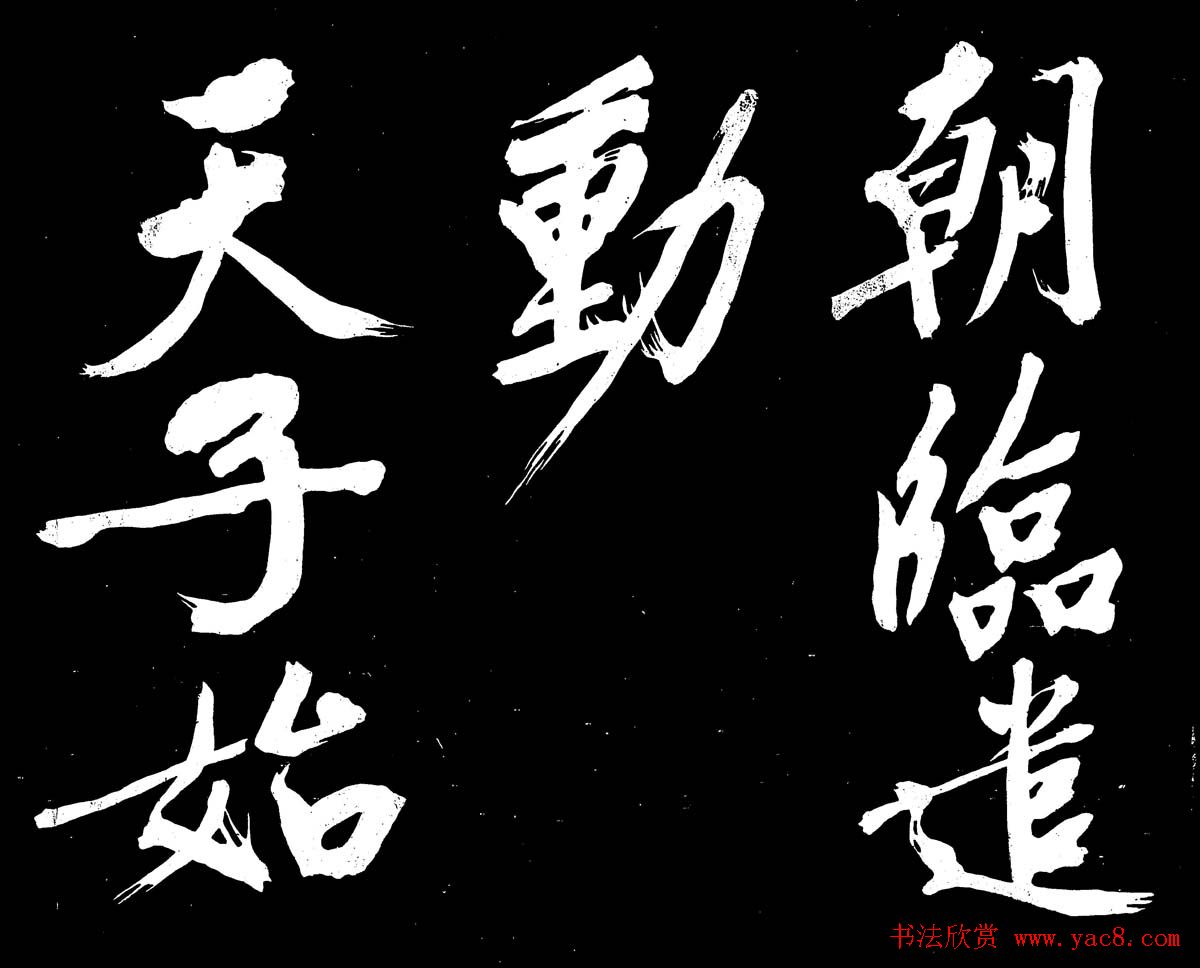 朝臨遣
動
天子始
书法欣赏 www.yac8.com